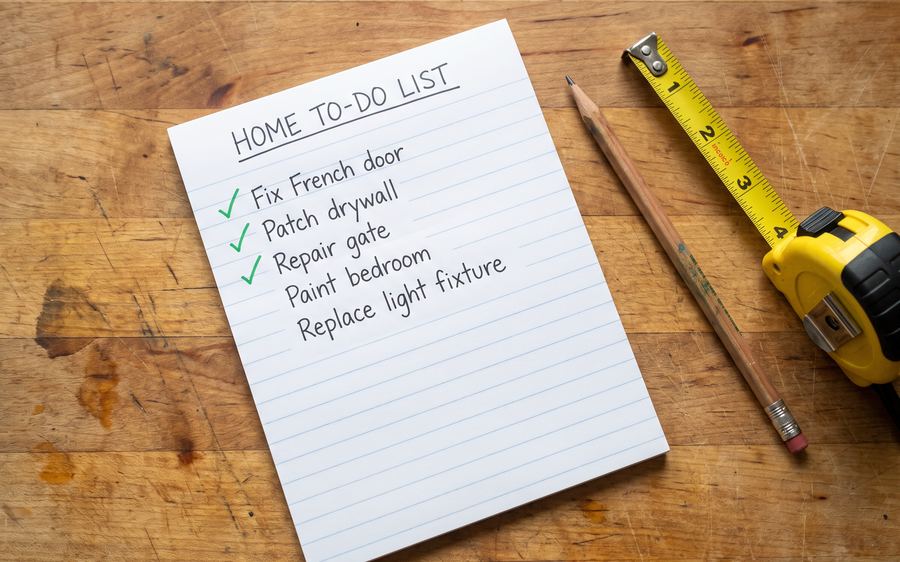 HOME TO-DO LIST
✓ Fix French door
✓ Patch drywall
✓ Repair gate
Paint bedroom
Replace light fixture
1
2
3
4